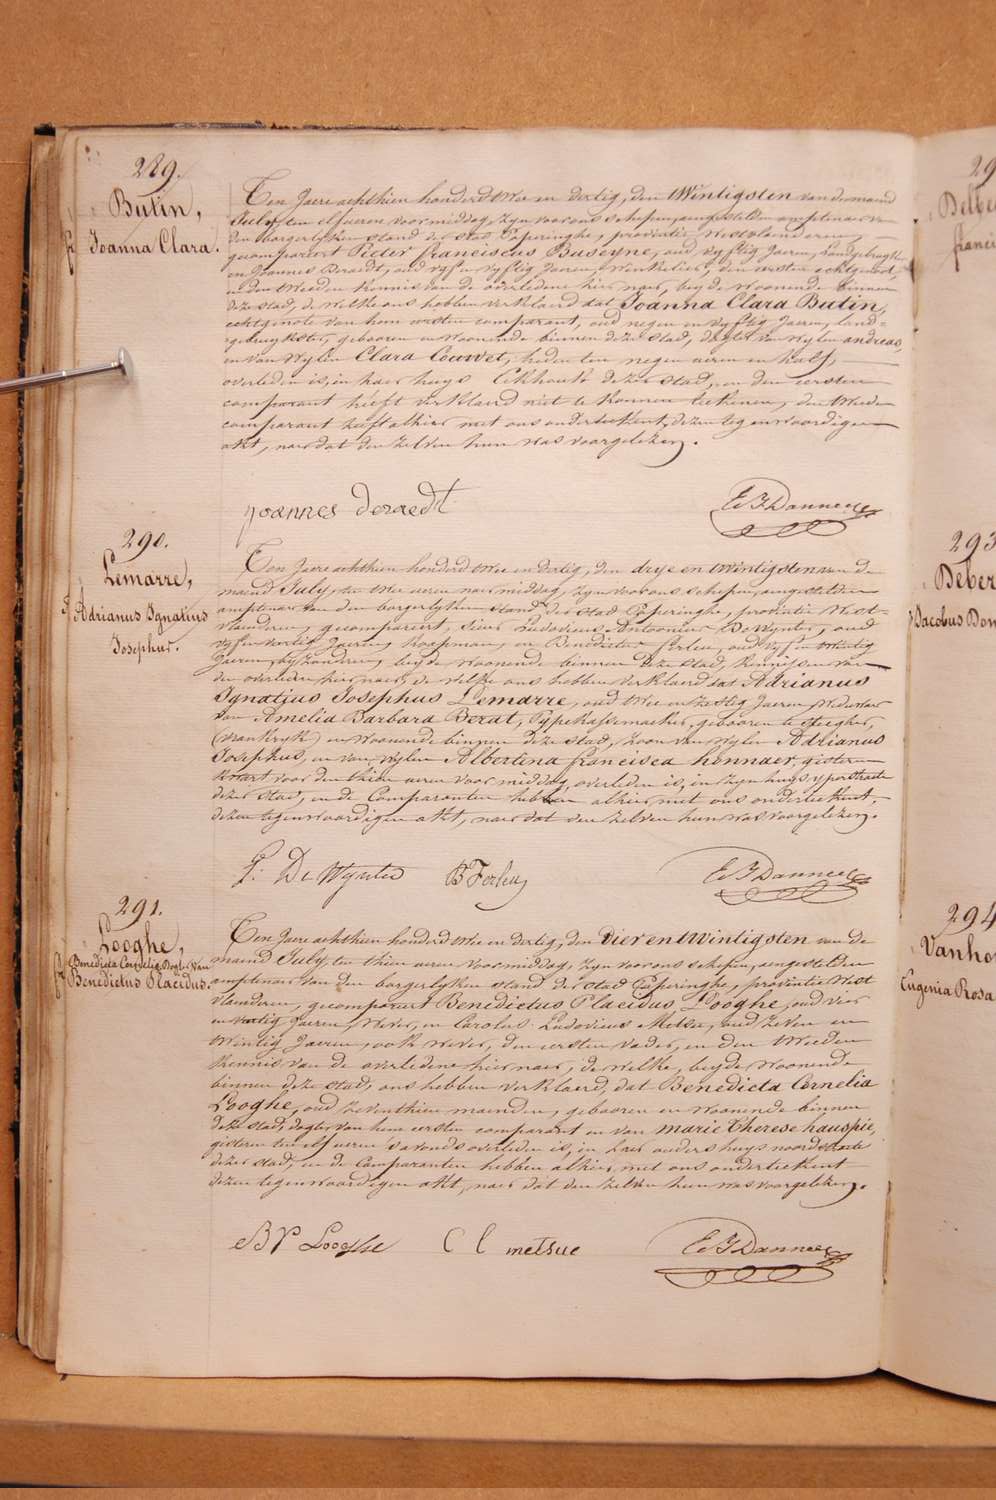 289.
Butin,
Joanna Clara.
Ten Jaere achthien honderd twee en dertig, den twintigsten van de maend
July, ten elf ueren voormiddag, zyn voor ons schepen, aengestelden amptenaer van
den borgerlyken stand der stad Poperinghe, provintie Westvlaenderen,
gecompareert Pieter Franciscus Buseyne, oud vyftig Jaeren, Landgebruyker
en Joannes Deraedt, oud vyf en vyftig Jaeren, Winkelier, den eersten echtgenoot,
en den tweeden kennis van de overledene hier naer, beyde woonende binnen
deze stad, de welke ons hebben verklaerd dat Joanna Clara Butin,
echtgenote van hem eersten comparant, oud negen en vyftig Jaeren, land-
gebruykster, gebooren en woonende binnen deze stad, dogter van wylen andreas,
en van wylen Clara Couwet, heden ten negen ueren en half,
overleden is, in haer huys Eekhoutk dezer stad, en den eersten
comparant heeft verklaerd niet te konnen teekenen, den tweeden
comparant heeft alhier met ons onderteekent, dezen tegenwoordigen
akt, naer dat den zelven hun was voorgelezen.
joannes deraedt
290.
Lemarre,
Adrianus Ignatius
Josephus.
Ten Jaere achthien honderd twee en dertig, den drye en twintigsten van de
maend July, ten twee ueren naermiddag, zyn voor ons schepen, aengestelden
amptenaer van den borgerlyken stand der stad Poperinghe, provintie West-
vlaenderen, gecompareert, sieur Ludovicus Antoonius De Wynter, oud
vyf en veertig Jaeren, koopman, en Benedictus Ferleu, oud vyf en twintig
Jaeren, byzonderen, beyde woonende binnen deze stad, kennissen van
den overleden hier naer, de welke ons hebben verklaerd dat Adrianus
Ignatius Josephus Lemarre, oud twee en zestig Jaeren, Weduwaer
van Amelia Barbara Berat, Pypekasmaeker, gebooren te
(vrankryk) en woonende binnen deze stad, zoon van wylen Adrianus
Josephus, en van wylen Albertina francisca honnaer, gisteren
kwart voor den thien ueren voormiddag, overleden is, in zyn huys yperstraete
dezer stad, en de Comparanten hebben alhier, met ons onderteekent,
dezen tegenwoordigen akt, naer dat den zelven hun was voorgelezen.
De Wynter B Ferleu
291.
Looghe,
Benedicta Cornelia, dogter van
Benedictus Placidus.
Ten Jaere achthien honderd twee en dertig, den vier en twintigsten van de
maend July, ten thien ueren voormiddag, zyn voor ons schepen, aengestelden
amptenaer van den borgerlyken stand der stad Poperinghe, provintie West
vlaenderen, gecompareert Benedictus Placidus Looghe, oud vier
en veertig Jaeren, Wever, en Carolus Ludovicus Metsu, oud zeven en
twintig Jaeren, ook wever, den eersten vader, en den tweeden
kennis van de overledene hier naer, de welke, beyde woonende
binnen deze stad, ons hebben verklaerd, dat Benedicta Cornelia
Looghe, oud zeventhien maenden, gebooren en woonende binnen
deze stad, dogter van hem eersten comparant en van marie Therese hauspie,
gisteren ten elf ueren s'avonds overleden is, in haer ouders huys noordstraete
dezer stad, en de Comparanten hebben alhier, met ons onderteekent
dezen tegenwoordigen akt, naer dat den zelven hun was voorgelezen.
B P Looghe C L metsue
293
Jacobus
294
Vanho
Eugenia Rosa